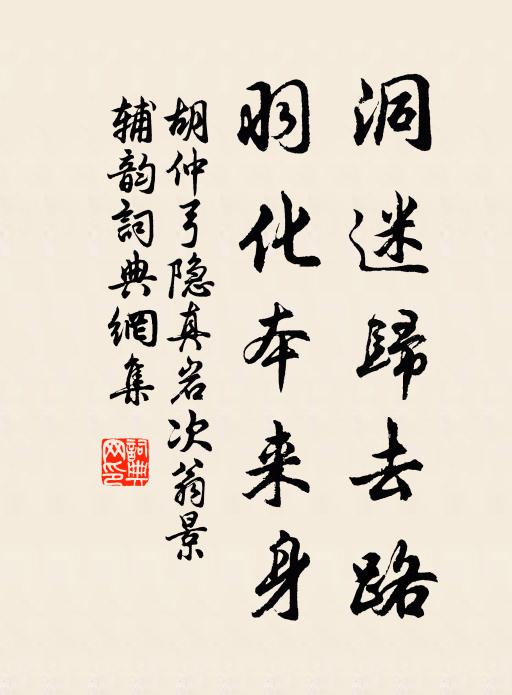 洞迷歸去路
羽化本来身
胡仲弓隐真岩次翁景
辅韵詞典網集
詞典网印